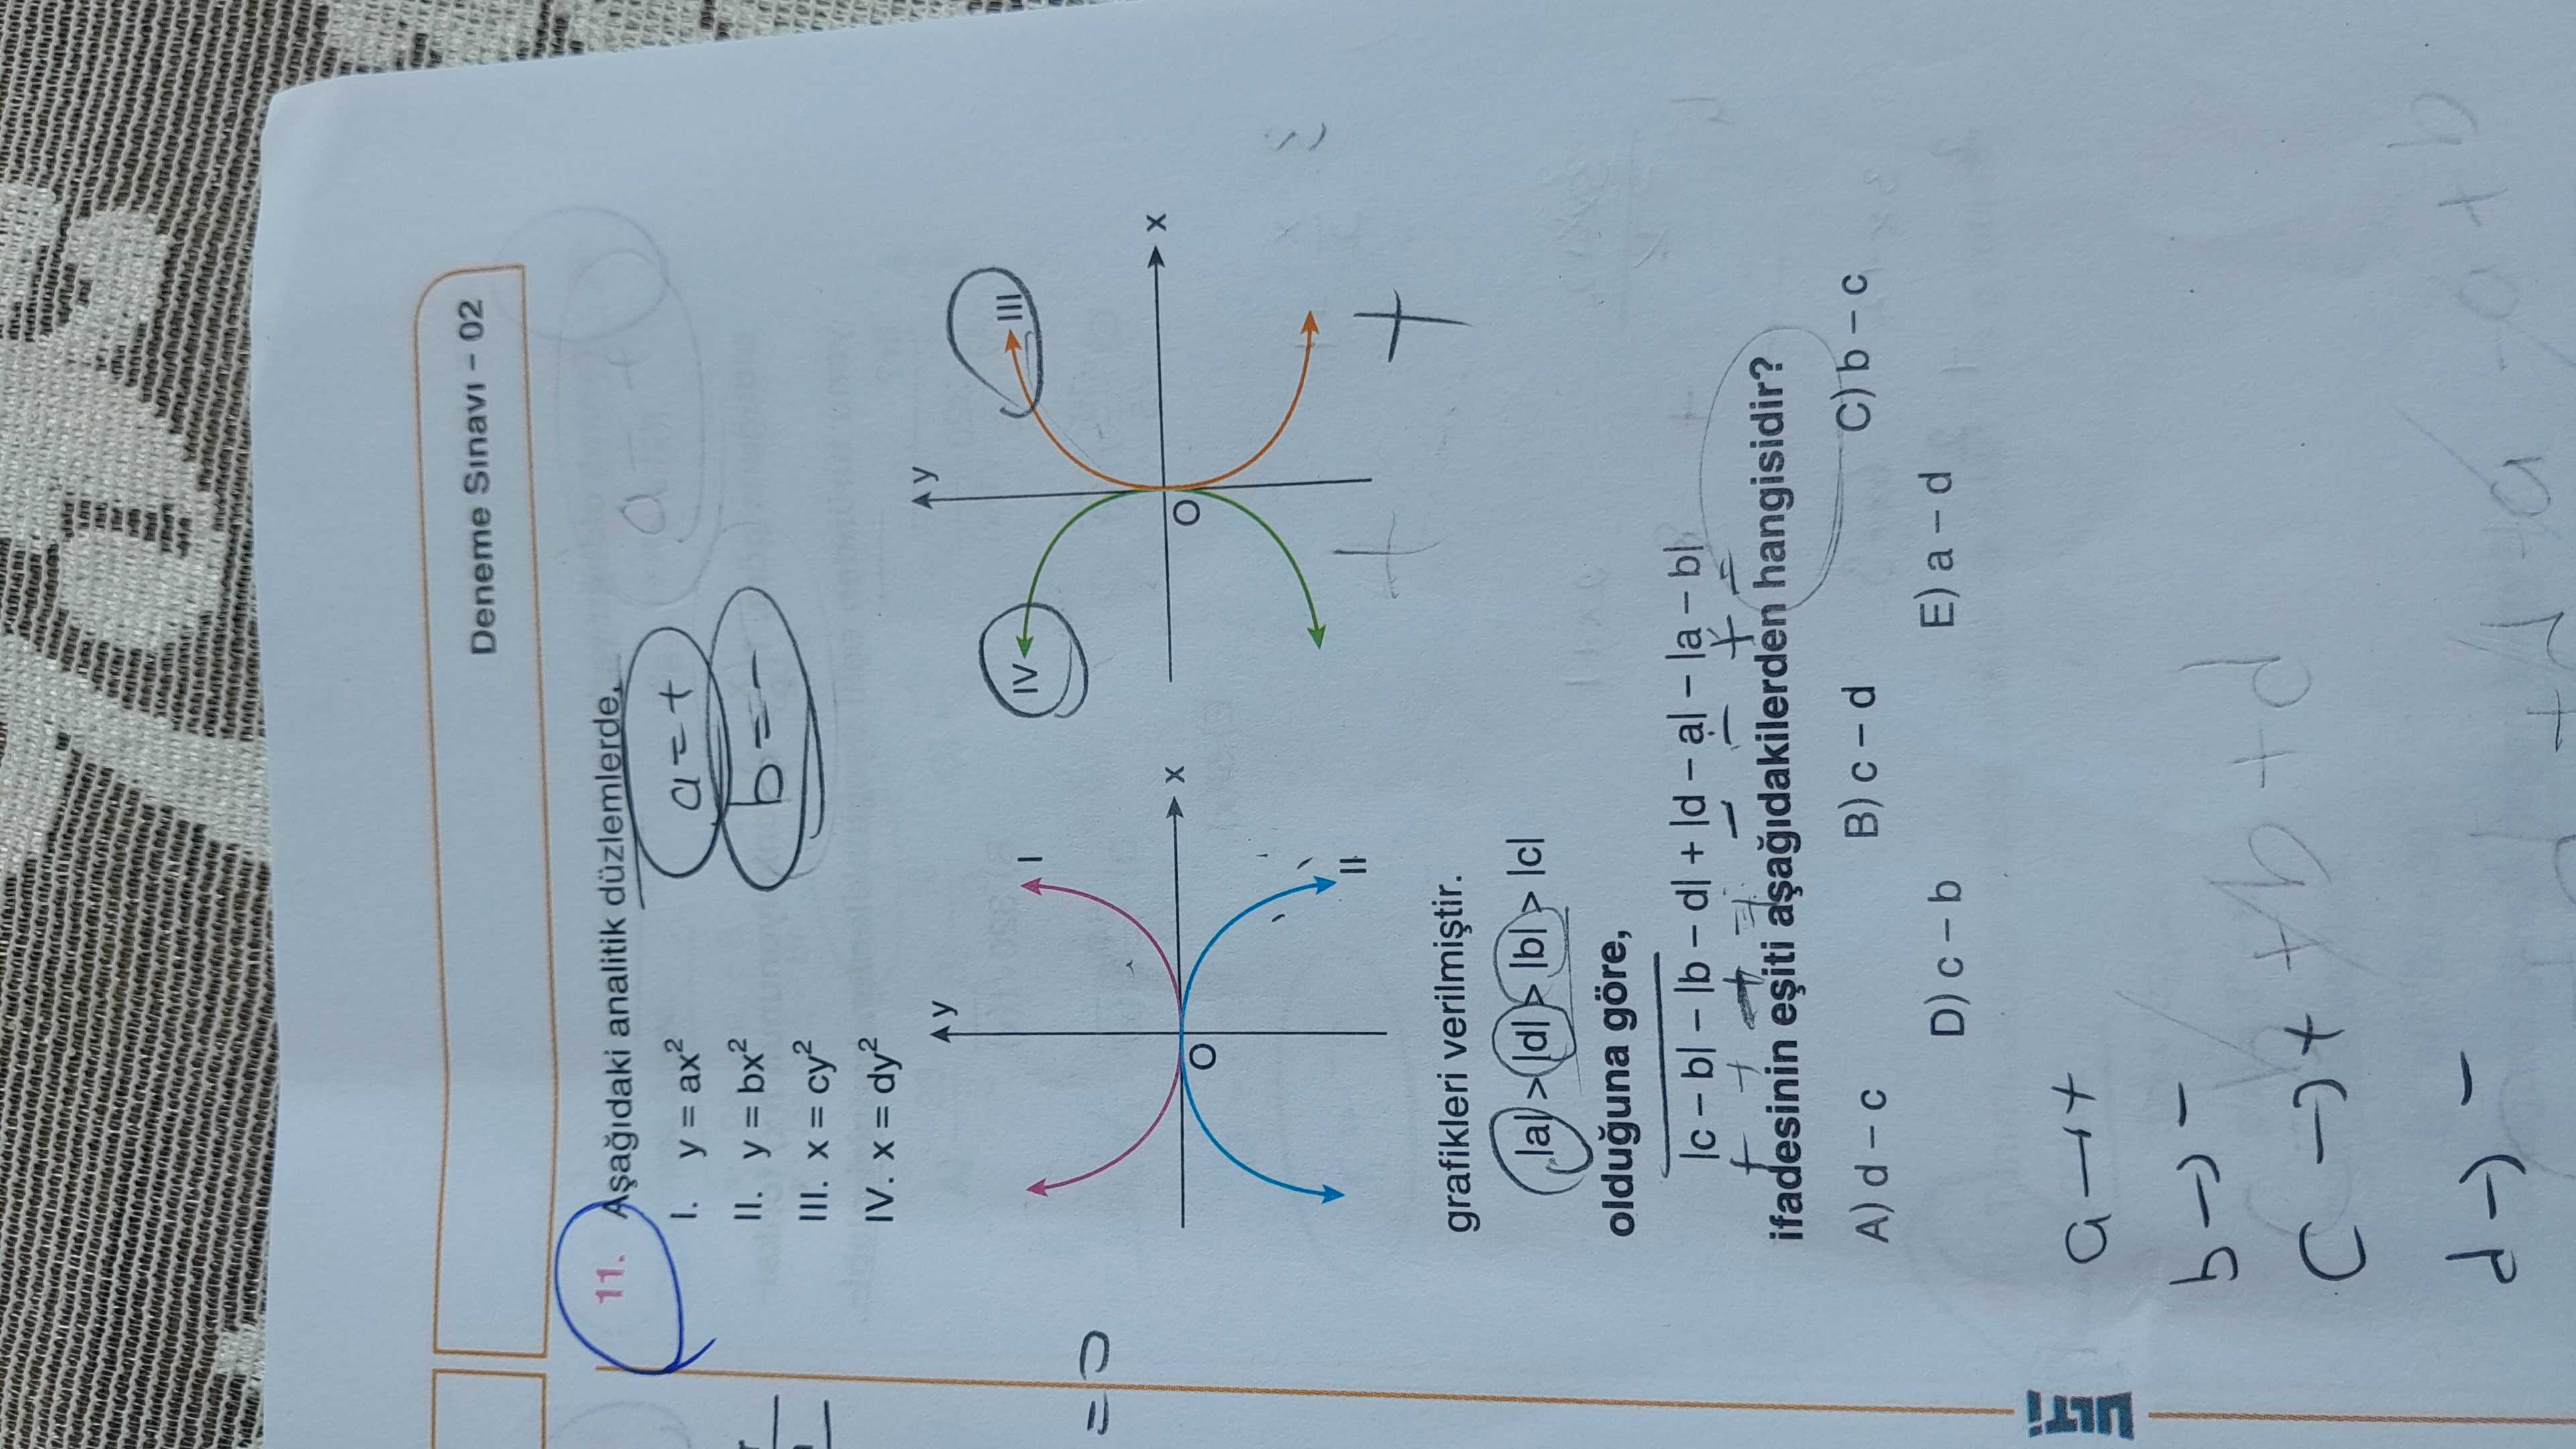 Deneme Sınavı – 02
11. Aşağıdaki analitik düzlemlerde,
I. y = ax²
a = +
II. y = bx²
b = -
III. x = cy²
IV. x = dy²
y
I
x
O
II
y
IV
III
x
O
+
+
grafikleri verilmiştir.
|a| > |d| > |b| > |c|
olduğuna göre,
|c – b| – |b – d| + |d – a| – |a – b|
ifadesinin eşiti aşağıdakilerden hangisidir?
A) d – c
B) c – d
C) b – c
D) c – b
E) a – d
a → +
b → -
c → +
d → -
ULTİ